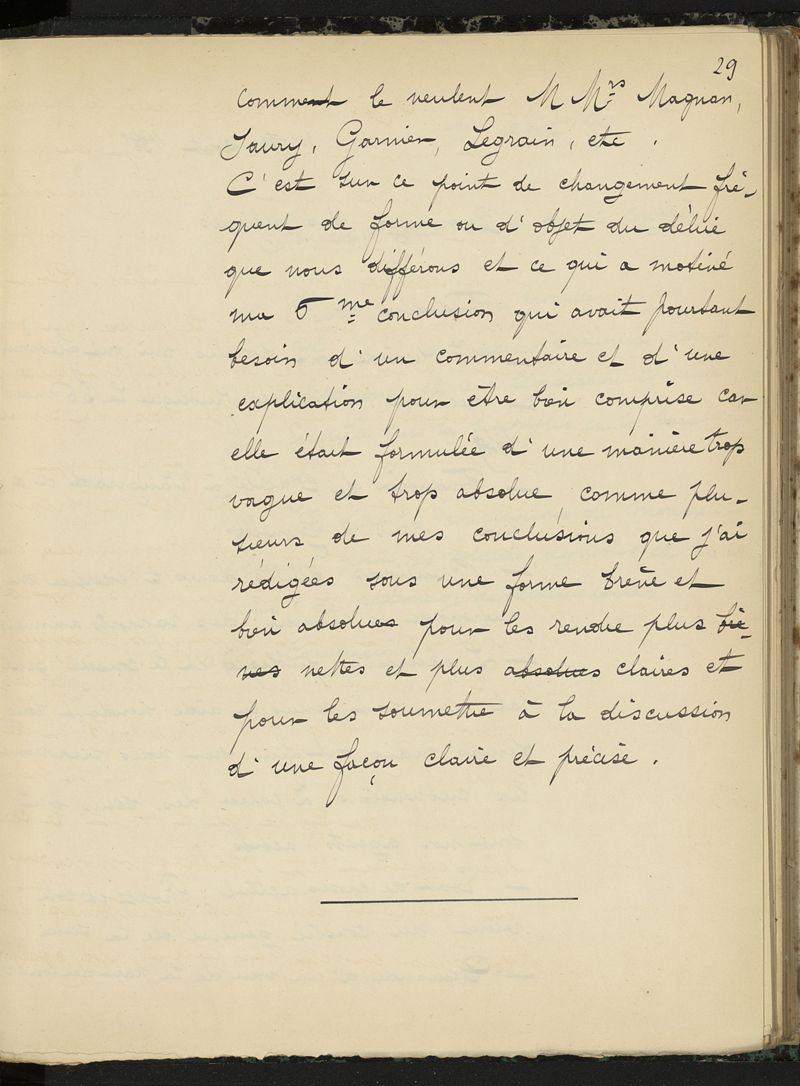 29
comment le veulent M Mrs Magnan,
Saury, Garnier, Legrain, etc.
C'est sur ce point de changement fré-
quent de forme ou d'objet du délire
que nous différons et ce qui a motivé
ma 5me conclusion qui avait pourtant
besoin d'un commentaire et d'une
explication pour être bien comprise car
elle était formulée d'une manière trop
vague et trop absolue, comme plu-
sieurs de mes conclusions que j'ai
rédigées sous une forme brève et
bien absolues pour les rendre plus brè-
ves nettes et plus absolues claires et
pour les soumettre à la discussion
d'une façon claire et précise.